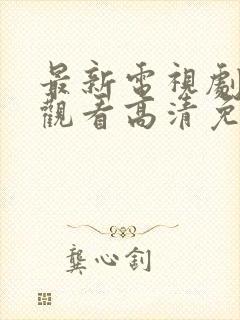 最新電視劇
觀看高清免
龔心釗